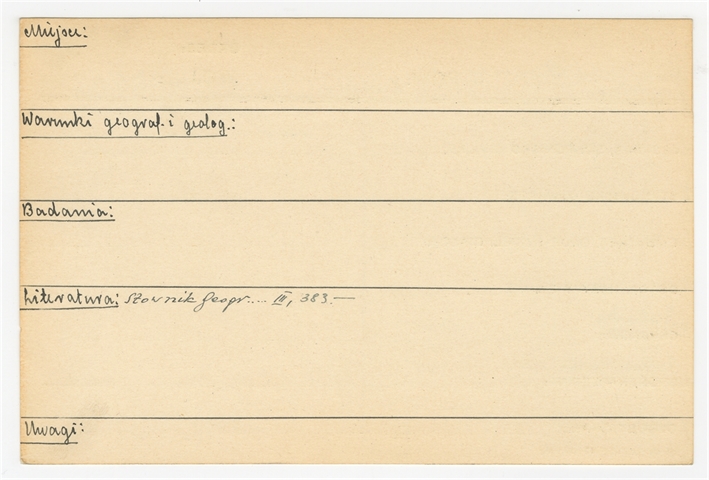 Miejsce:
Warunki geograf. i geolog.:
Badania:
Literatura: Słownik geogr.... III, 383.—
Uwagi: